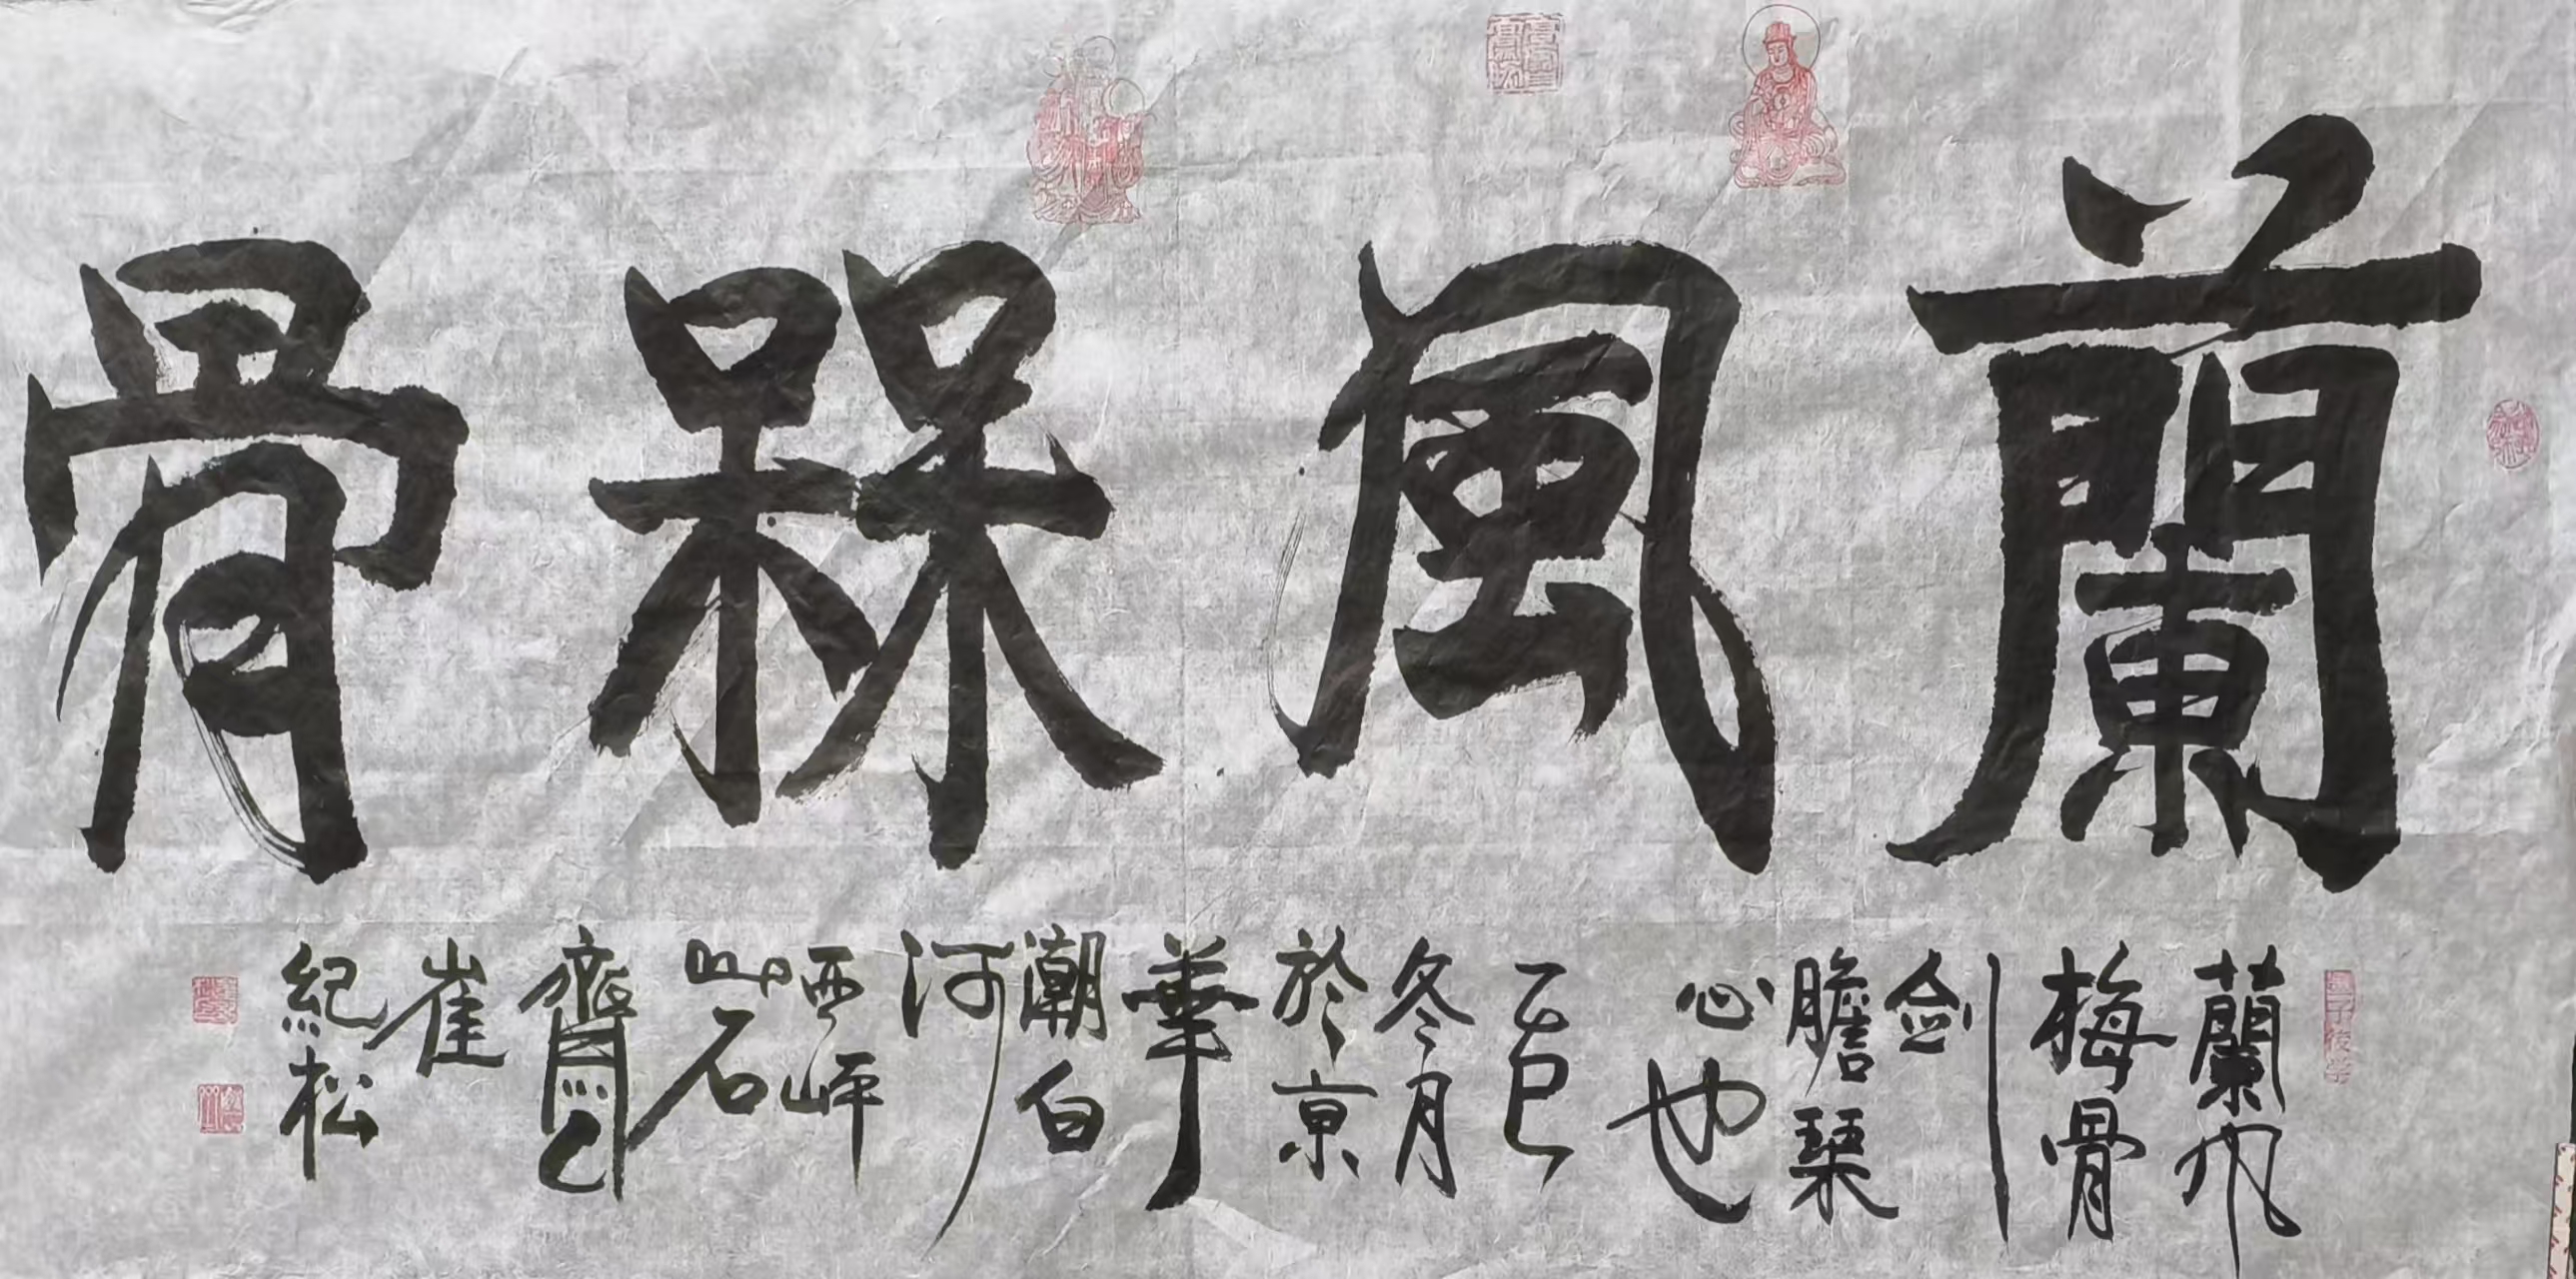 蘭風槑骨
蘭风
梅骨
剑
膽琴
心也
乙巳
冬月
於京
華
潮白
河
西岸
石
齋
崔
紀松